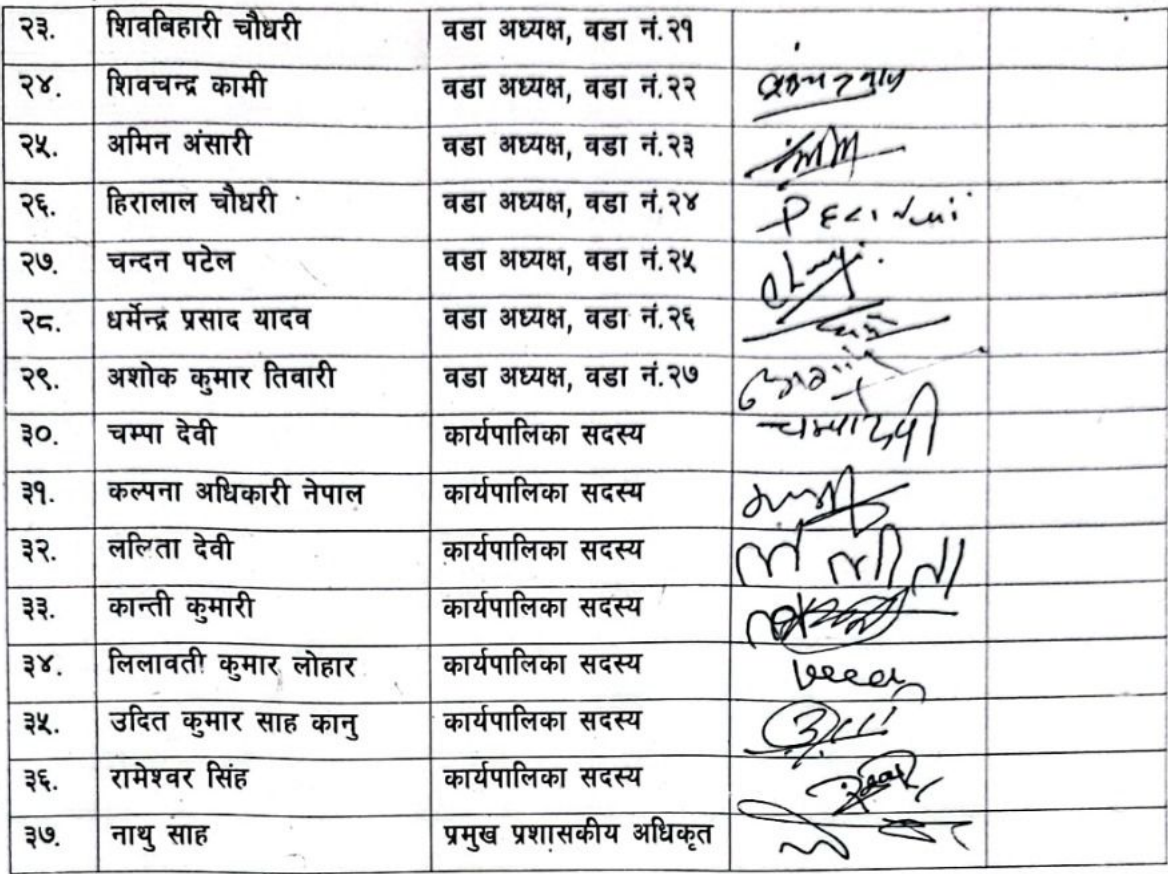 २३. शिवबिहारी चौधरी वडा अध्यक्ष, वडा नं.२१
२४. शिवचन्द्र कामी वडा अध्यक्ष, वडा नं.२२
२५. अमिन अंसारी वडा अध्यक्ष, वडा नं.२३
२६. हिरालाल चौधरी वडा अध्यक्ष, वडा नं.२४
२७. चन्दन पटेल वडा अध्यक्ष, वडा नं.२५
२८. धर्मेन्द्र प्रसाद यादव वडा अध्यक्ष, वडा नं.२६
२९. अशोक कुमार तिवारी वडा अध्यक्ष, वडा नं.२७
३०. चम्पा देवी कार्यपालिका सदस्य चम्पा देवी
३१. कल्पना अधिकारी नेपाल कार्यपालिका सदस्य
३२. ललिता देवी कार्यपालिका सदस्य
३३. कान्ती कुमारी कार्यपालिका सदस्य
३४. लिलावती कुमार लोहार कार्यपालिका सदस्य
३५. उदित कुमार साह कानु कार्यपालिका सदस्य
३६. रामेश्वर सिंह कार्यपालिका सदस्य
३७. नाथु साह प्रमुख प्रशासकीय अधिकृत